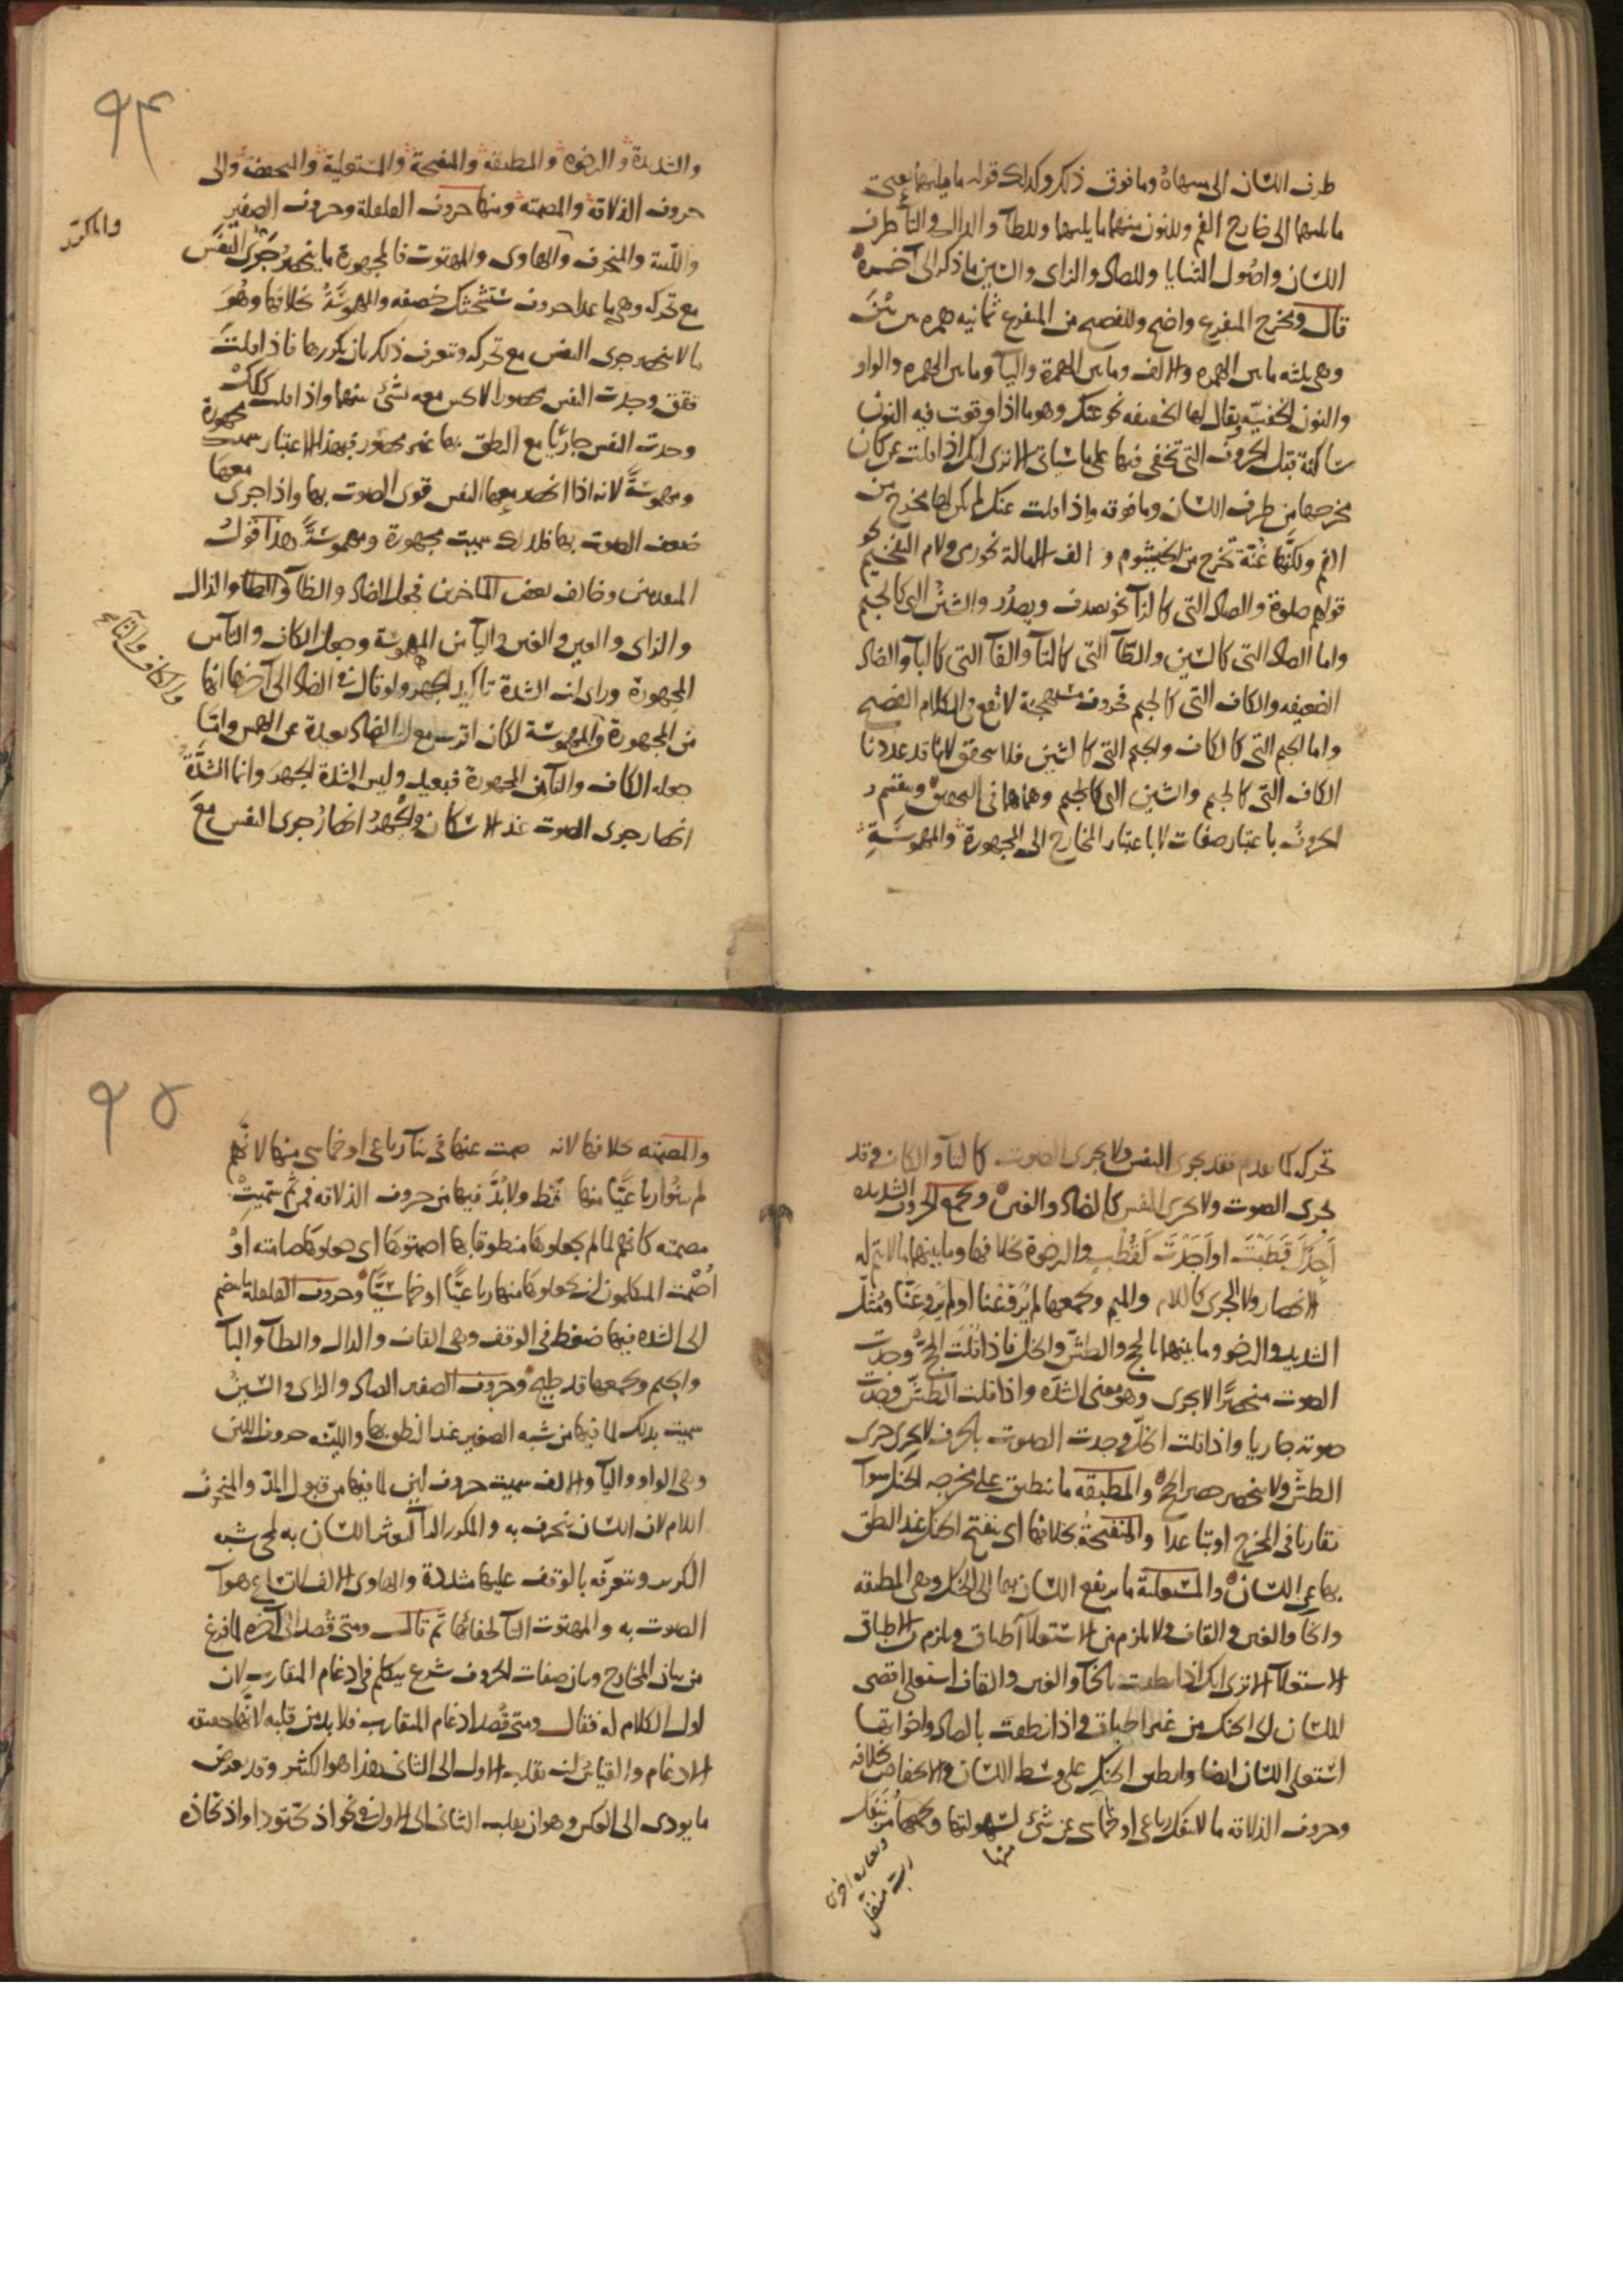 طرف اللسان الى منتهاه وما فوق ذلك وكذلك قوله ما يليهما يعنى
ما يليهما الى خارج الفم وللنون منهما ما يليهما وللطآ والدال والتآ طرف
اللسان واصول الثنايا وللصاد والزاى والسين ما ذكر الى آخره
قال ومخرج المتفرع واضح وللفصيح من المتفرع ثمانيه همزه بين بين
وهى ثلثه ما بين الهمزه والالف وما بين الهمزة واليآ وما بين الهمزه والواو
والنون الخفيّه ويقال لها الخفيفه نحو عنك وهو ما اذا وقعت فيه النون
ساكنة قبل الحروف التى تخفى فيها على ما سياتى الا ترى انك اذا قلت عن كان
مخرجها من طرف اللسان وما فوقه واذا قلت عنك لم يكن لها مخرج من
الفم ولكنّها غنّة تخرج من الخيشوم والف الامالة نحو رمى ولام التفخيم نحو
قولهم صلوة والصاد التى كالزآ نحو يصدف ويصدُر والشين التى كالجيم
واما الصاد التى كالسين والطآ التى كالتآ والفآ التى كالبآ والضاد
الضعيفه والكاف التى كالجيم فحروف مستهجنة لا تقع فى الكلام الفصيح
واما الجيم التى كالكاف والجيم التى كالشين فلا يتحقق لانا قد عددنا
الكاف التى كالجيم والشين التى كالجيم وهما هما فى التحقيق وينقسم
الحروف باعتبار صفات لا باعتبار المخارج الى المجهورة والمهموسة
٩٤
والشديدة والرخوه والمطبقه والمنفتحة والمستعلية والمنخفضه والى
حروف الذلاقه والمصمته ومنها حروف القلقلة وحروف الصفير
واللّينة والمنحرف والهاوى والمهتوت فالمجهورة ما ينحصر جَرْى النَّفَس
والمكرّر
مع تحركه وهى ما عدا حروف ستشحثك خصفه والمهموسَة بخلافها وهُوَ
ما لا ينحصر جرى النفس مع تحركه وتعرف ذلك بان تكررها فاذا قلت
ققق وجدت النفس محصورا لا تحس معه بشئ منهما واذا قلت كَكَك
وجدت النفس جاريًا مع النطق بها غير محصور فبهذا الاعتبار سميت مجهورة
ومهموسَةً لانه اذا انحصر معها النفس قوى الصوت بها واذا جرى معها
ضعف الصوت بها فلذلك سميت مجهورة ومهموسَةً هذا قول
المتقدمين وخالف بعض المتاخرين فجعل الضاد والظآ والطا والذال
والزاى والعين والغين واليآ من المهموسَة وجعل الكاف والتآ من
المجهورة وراى ان الشدة تاكيد الجهر ولو قال فى الضاد الى آخرها انها
والكاف والتآ
من المجهورة والمهموسَة لكان اقرب مع ان الضاد بعيدة عن الهمس وامّا
جعله الكاف والتآ من المجهورة فبعيد وليس الشدة الجهرَ وانما الشدَّةُ
انحصار جرى الصوت عند الاسكان والجهرُ انحصارُ جرى النفس معَ
تحركه كما تقدم فقد يجرى النفس ولا يجرى الصوت كالتآ والكاف وقد
يجرى الصوت ولا يجرى النفس كالضاد والغين ويجمع الحروف الشديده
اَجِدُكَ قَطَبْتَ او اَجَدْتَ كَقُطْبٍ والرخوة بخلافها وما بينهما ما لا يتم له
الانحصار ولا الجرى كاللام والميم ويجمعها لم يُرَوِّعْنا او لم يُرَوِّعَنّا ومثّل
الشديد والرخو وما بينهما بالحج والطشّ والخل فاذا قلت الحجّ وجدت
الصوت منحصرًا لا يجرى وهو معنى الشدّه واذا قلت الطشّ وجدت
صوته جاريا واذا قلت الخلّ وجدت الصوت بالحرف لا يجرى جرى
الطشّ ولا ينحصر حصر الحجّ والمطبقه ما ينطبق على مخرجه الحنك سوآ
تقاربا فى المخرج او تباعدا والمنفتحة بخلافها اى ينفتح الحنك عند النطق
بها عن اللسان والمستعلية ما يرتفع اللسان بها الى الحنك وهى المطبقه
والخآ والغين والقاف ولا يلزم من الاستعلآ اطباق ويلزم من الاطباق
الاستعلآ الا ترى انك اذا نطقت بالخآ والغين والقاف استعلى اقصى
اللسان الى الحنك من غير اطباق واذا نطقت بالصاد واخواتها
استعلى اللسان ايضا وانطبق الحنك على وسط اللسان والانخفاض بخلافه
وحروف الذلاقه ما لا ينفك رباعى او خماسى عن شئ منها لسهولتها ويجمعها مُرْ بنَفَل
وبعباره اخرى
رب منفل
٩٥
والمصمته بخلافها لانه صمت عنها فى بنآ رباعى او خماسى منها لانّهم
لم يبنُوا رباعيًّا منها قط ولا بُدَّ فيها من حروف الذلاقه فمن ثَم سُمّيت
مصمته كانهم لما لم يجعلوها منطوقا بها اصمتوها اى جعلوها صامته اَوْ
اُصْمت المتكلمون ان يجعلوا منها رباعيًّا او خماسيًّا وحروف القلقلة ما ينضم
الى الشده فيها ضغط فى الوقف وهى القاف والدال والطآ والبآ
والجيم ويجمعها قد طبج وحروف الصفير الصاد والزاى والسين
سميت بذلك لما فيها من شبه الصفير عند النطق بها واللينه حروف اللين
وهى الواو واليآ والالف سميت حروف لين لما فيها من قبول المدّ والمنحرف
اللام لان اللسان ينحرف به والمكرر الرآ لتعثر اللسان به لما يحس شبه
التكرير وتتعرفه بالوقف عليها مشددة والهاوى الالف لاتساع هوآ
الصوت به والمهتوت التآ لخفائها ثم قال ومتى قصد الى آخره لما فرغ
من بيان المخارج وبيان صفات الحروف شرع يتكلم فى ادغام المتقارب لان
اول الكلام له فقال ومتى قُصد ادغام المتقارب فلا بد من قلبه لانها حقيقه
الادغام والقياس ان تقلب الاول الى الثانى هذا هو الكثير وقد يعرض
ما يودى الى العكس وهو ان يقلب الثانى الى الاول فى نحو اذبحّتودا واذبحّاذه